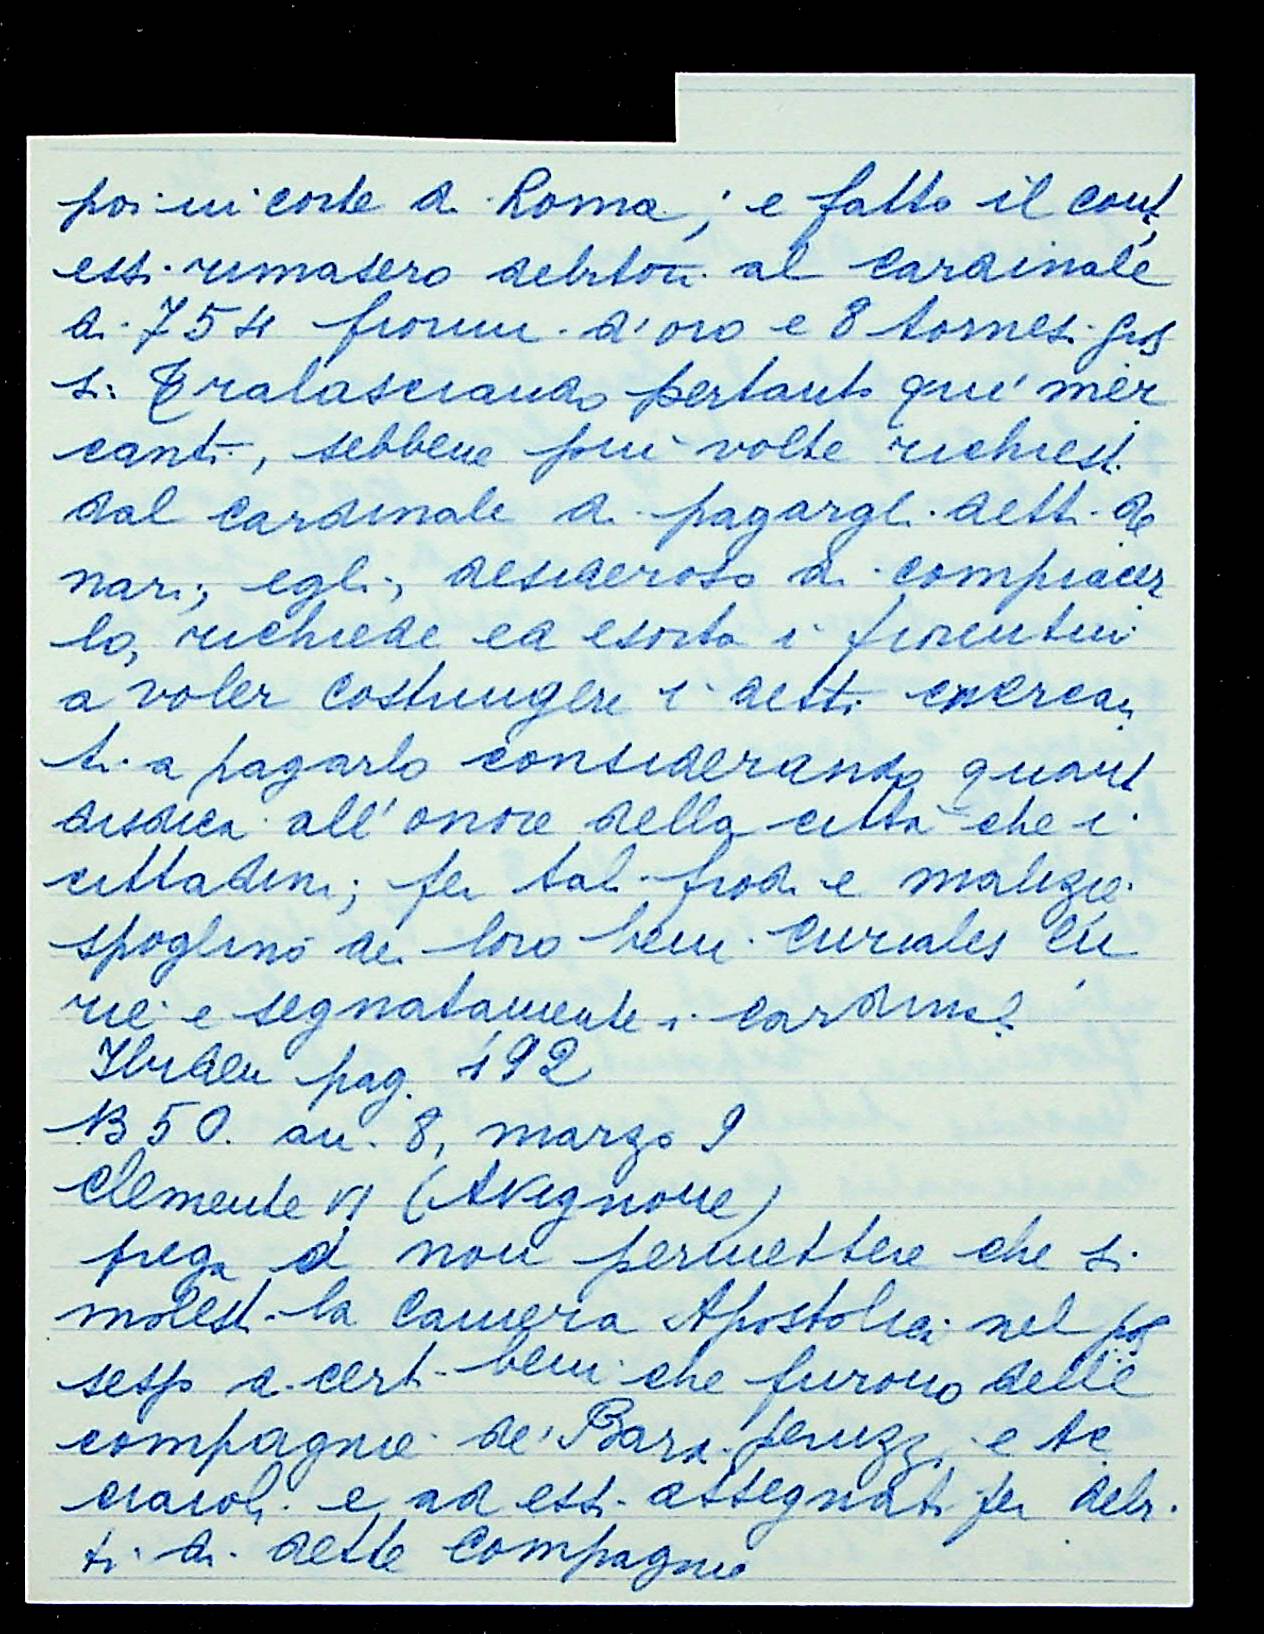 poi in corte di Roma; e fatto il cont
essi rimasero debitori al cardinale
di 754 fiorini d'oro e 8 tornesi gros
si: Tralasciando pertanto que' mer
canti, sebbene più volte richiesti
dal cardinale di pagargli detti de
nari; egli, desideroso di compiacer
lo, richiede ed esorta i fiorentini
a voler costringere i detti mercan
ti a pagarlo considerando quant
disdica all'onore della città che i
cittadini; per tali frodi e malizie
spoglino dei loro beni curiales cu
rie e segnatamente i cardinali
Ibidem pag. 192
1350. an. 8, marzo 9
Clemente VI (Avignone)
prega di non permettere che si
molesti la Camera Apostolica nel pos
sesso di certi beni che furono delle
compagnie de' Bardi Peruzzi e Ac
ciaioli e ad essi assegnati per debi
ti di dette compagnie